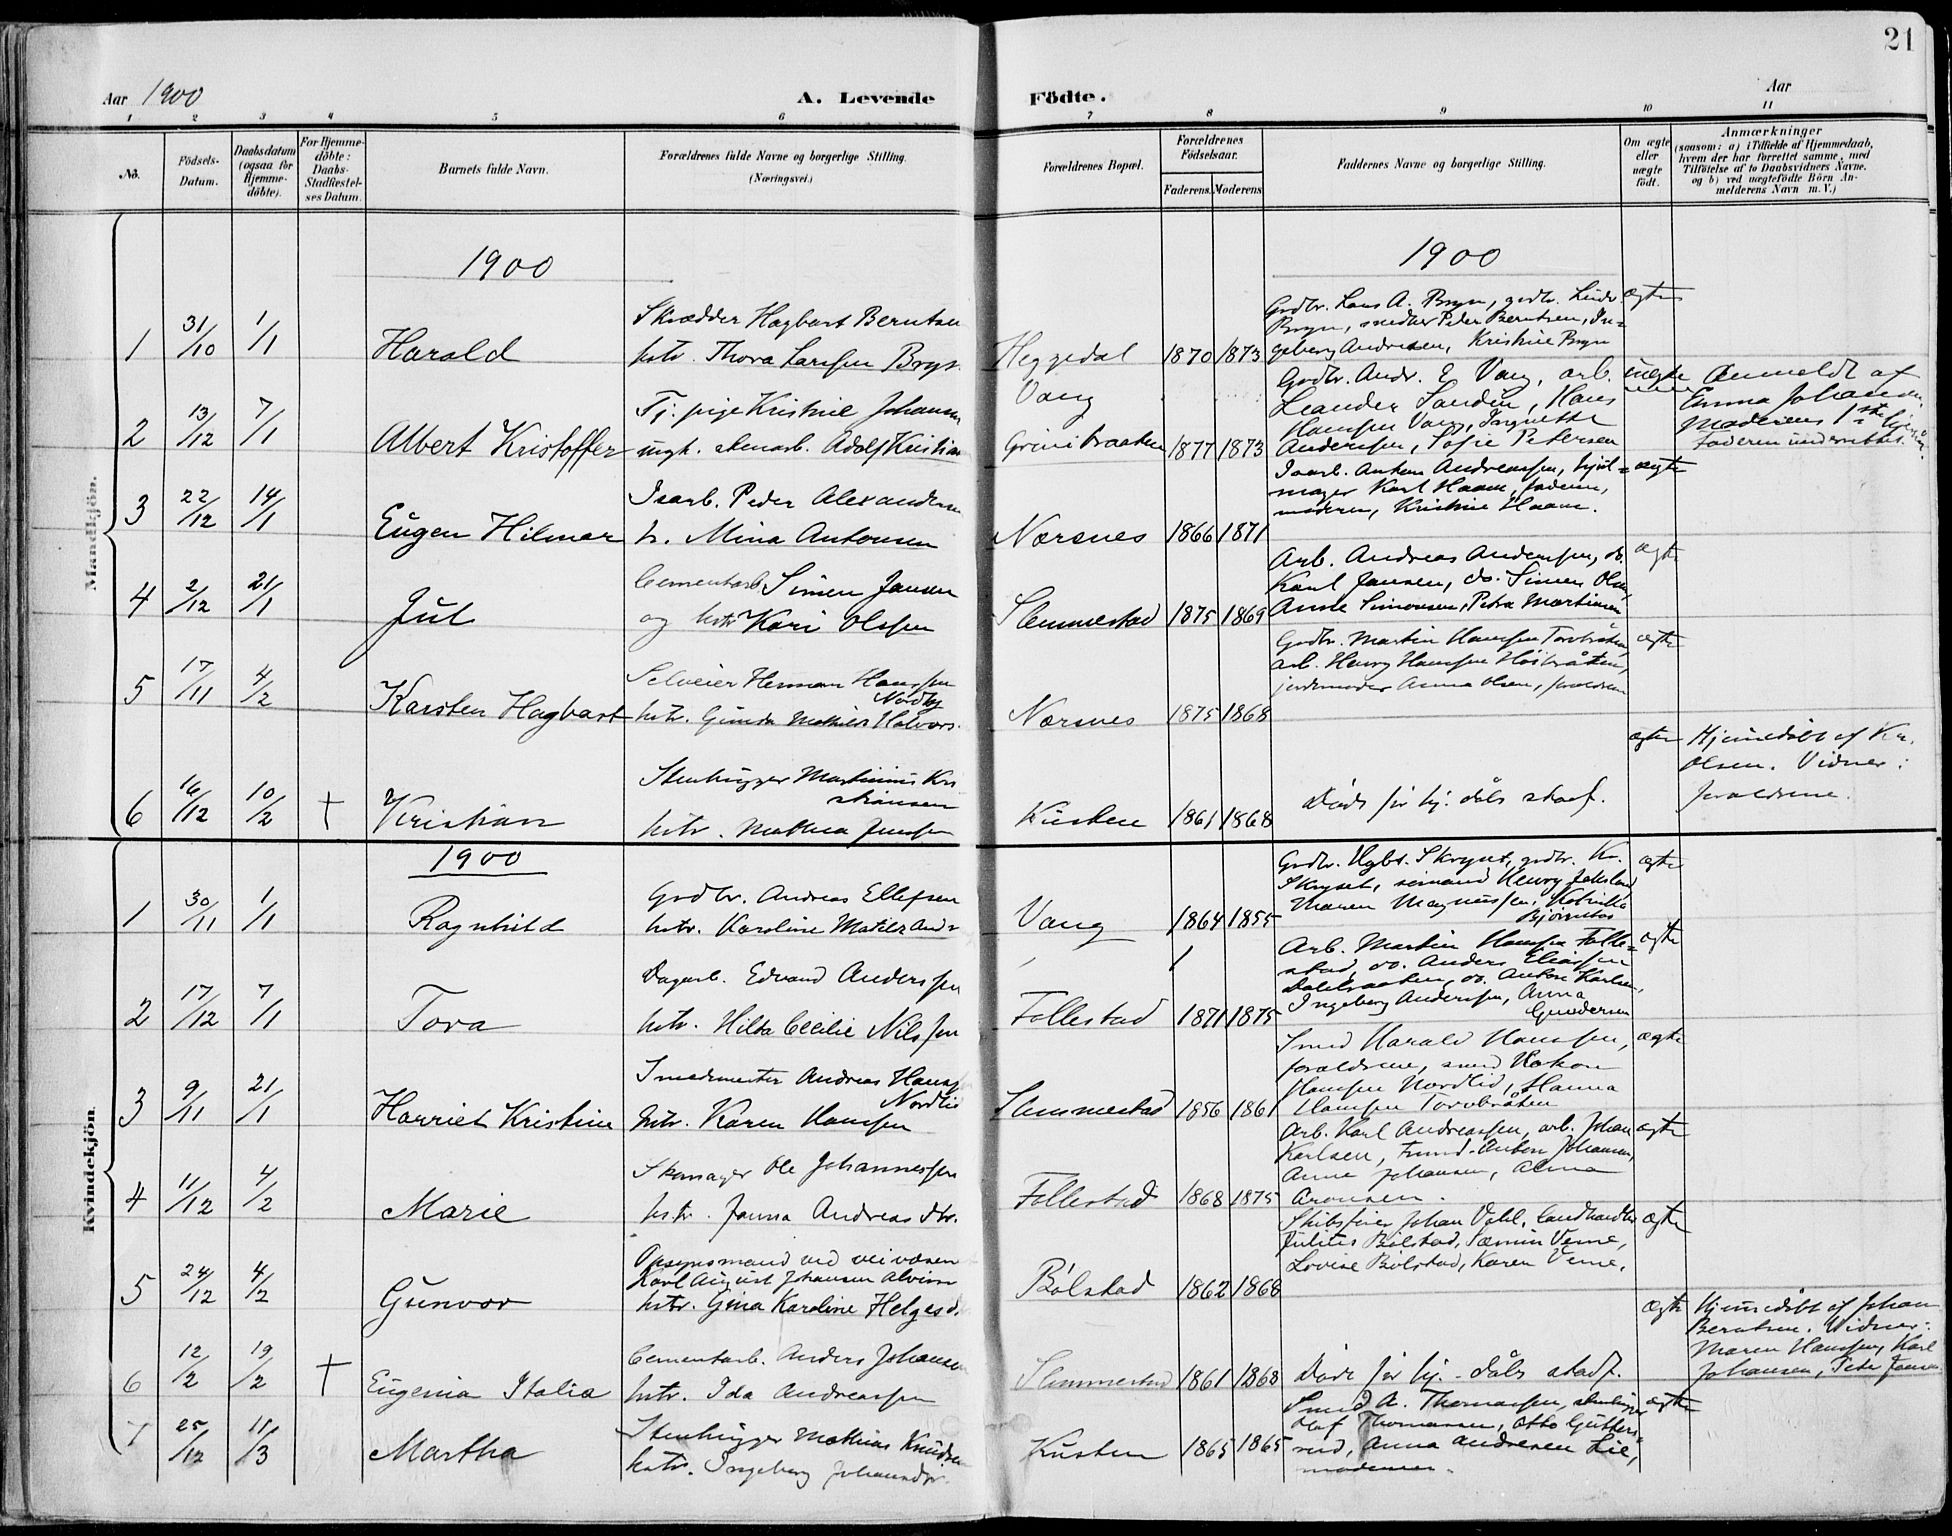 21
Aar 1900
A. Levende
Födte.
Aar
1 2 3 4 5 6 7 8 9 10 11
No.
Födsels-
Datum.
Daabsdatum
(ogsaa for
Hjemme-
döbte).
For Hjemme-
döbte:
Daabs-
Stadfæstel-
ses Datum.
Barnets fulde Navn.
Forældrenes fulde Navne og borgerlige Stilling.
(Næringsvei.)
Forældrenes Bopæl.
Forældrenes
Födselsaar.
Faderens.
Moderens.
Faddernes Navne og borgerlige Stilling.
Om ægte
eller
uægte
födt.
Anmærkninger
(saasom: a) i Tilfælde af Hjemmedaab,
hvem der har forrettet samme, med
Tilföielse af to Daabsvidners Navne.
og b) ved uægtefödte Börn An-
melderens Navn m. V.)
Mandkjön.
1900
1900
1 31/10 1/1 Harald
Skrædder Hagbart Berntsen
hstr. Thora Larssen Bryn
Heggedal 1870 1873
Grdbr. Hans A. Bryn, grdbr. Lindr.
Bryn, snedker Peder Berntsen, In=
geborg Andresen, Kristine Bryn
ægte
2 13/12 7/1 Albert Kristoffer
Tj. pige Kristine Johansen
ungk. stenarb. Adolf Kristian
Vang
Grinibraaten 1877 1873
Grdbr. Andr. E Vang, arb.
Leander Sanden, Hans
Hanssen Vang, Jaquette
Anderssen, Sofie Petersen
uægte
Anmeldt af
Emma Johansen.
Moderens 1ste
faderen underrettet.
3 22/12 14/1 Eugen Hilmar
Isarb. Peder Alexandersen
h. Mina Antonsen
Nærsnes 1866 1871
Isarb. Anton Andreassen, hjul=
mager Karl Haave, faderen,
moderen, Kristine Haave.
ægte
4 2/12 21/1 Jul
Cementarb. Simen Jansen
og hstr Kari Olssen
Slemmestad 1875 1869
Arb. Andreas Anderssen, do.
Karl Jansen, do. Simen Olsen,
Anne Simonsen, Petra Martinsen
ægte
5 17/11 4/2 Karsten Hagbart
Selveier Herman Hanssen
Nordby
hstr. Gunda Mathilde Halvors.
Nærsnes 1875 1868
Grdbr. Martin Hanssen Torvbråten,
arb. Henry Hanssen Höibråten,
jordmoder Anna Olsen, forældrene
ægte
6 16/12 10/2 † Kristian
Stenhugger Martinius Kri
stiansen
hstr. Mathea Jenssen
Kusten 1861 1868
Död för hj. dåbs stadf.
ægte
Hjemedöbt af Kr.
Olsen. Vidner:
forældrene.
Kvindekjön.
1900
1 30/11 1/1 Ragnhild
Grdbr. Andreas Ellefsen
hstr. Karoline Matilde Andr
Vang 1864 1855
Grdbr. Hgbt. Skryset, grdbr. Kr.
Skryset, sömand Henry Jelstad
Maren Magnussen, Katinka
Bjørnstos
ægte
2 17/12 7/1 Tora
Dagarb. Edvard Anderssen
hstr. Hilda Cecilie Nilssen
Follestad 1871 1875
Arb. Martin Hanssen Folle=
stad, do. Anders Eliassen
Dalbraaten, do. Anton Karlsen,
Ingeborg Anderssen, Anna
Gundersen
ægte
3 9/11 21/1 Harriet Kristine
Smedmester Andreas Hanss
Nordlid
hstr. Karen Hanssen
Slemmestad 1856 1861
Smed Harald Hanssen,
forældrene, smed Hakon
Hanssen Nordlid, Hanna
Hanssen Torvbråten
ægte
4 11/12 4/2 Marie
Skomager Ole Johannessen
hstr. Janna Andreasdtr.
Follestad 1868 1875
Arb. Karl Andreassen, arb. Johan
Karlsen, Anton Johansen,
Anne Johansen, Anna
Aronsen.
ægte
5 24/12 4/2 Gunvor
Opsynsmand ved veivæsen
Karl August Johansen Alvim
hstr. Gina Karoline Helgesd.
Bölstad 1862 1868
Skibsförer Johan Vahl, landhandler
Julius Bölstad, Sæmin Verne,
Lovise Bölstad, Karen Verne,
ægte
6 12/2 19/2 † Eugenia Italia
Cementarb. Anders Johansen
hstr. Ida Andreassen
Slemmestad 1861 1868
Död för hj.-dåbs stadf.
ægte
Hjemmedöbt af Johan
Berntsen. Vidner:
Maren Hanssen, Karl
Johansen, Peter Jansen
7 25/12 11/3 Martha
Stenhugger Mathias Knudsen
hstr. Ingeborg Johannsdtr.
Kusten 1865 1865
Smed A. Thomassen, stenhugger
Olaf Thomassen, Otto Gutters=
rud, Anna Andresen Lie,
moderen.
ægte